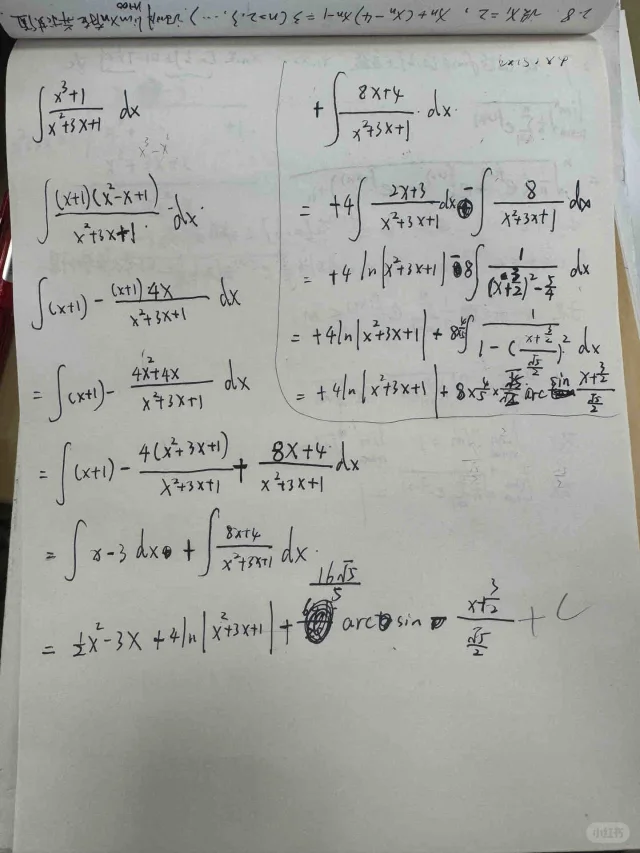 2.8. 设X₁=2, Xₙ+(Xₙ-4)Xₙ-1=3(n=2.3.…).证明limXₙ存在并求其值
∫ (x³+1)/(x²+3x+1) dx
x³-x²
∫ (x+1)(x²-x+1)/(x²+3x+1) dx.
∫(x+1) - (x+1)4x/(x²+3x+1) dx
= ∫(x+1) - (4x²+4x)/(x²+3x+1) dx
= ∫(x+1) - 4(x²+3x+1)/(x²+3x+1) + (8x+4)/(x²+3x+1) dx
= ∫ x-3 dx + ∫ (8x+4)/(x²+3x+1) dx.
= ½x²-3x+4ln|x²+3x+1| + 16√5/5 arcsin (x+3/2)/(√5/2) + C
+ ∫ (8x+4)/(x²+3x+1) dx.
= +4∫ (2x+3)/(x²+3x+1) dx - ∫ 8/(x²+3x+1) dx
= +4 ln|x²+3x+1| - 8∫ 1/((x+3/2)²-5/4) dx
= +4ln|x²+3x+1| + 8·4/5∫ 1/(1-((x+3/2)/(√5/2))²) dx
= +4ln|x²+3x+1| + 8×4/5×√5/2 arcsin (x+3/2)/(√5/2)
小红书